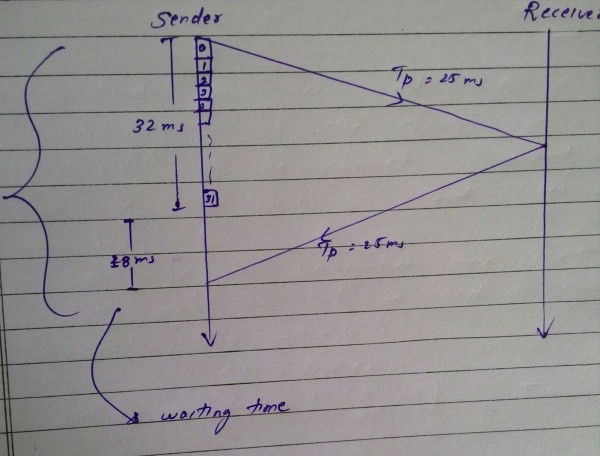 Sender
Receive
0
1
2
3
Tp = 25 ms
32 ms
31
Tp = 25 ms
18 ms
waiting time